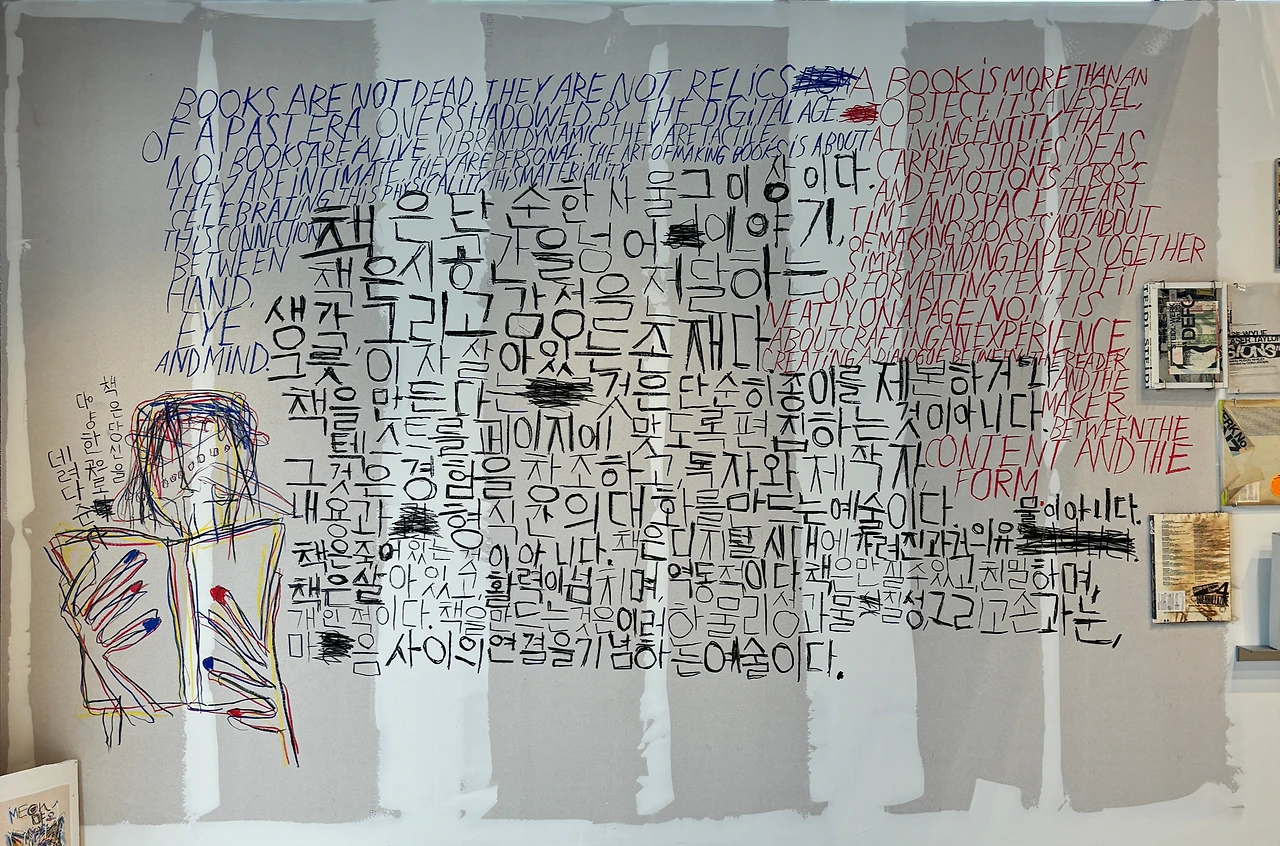 BOOKS ARE NOT DEAD. THEY ARE NOT RELICS
OF A PAST ERA, OVERSHADOWED BY THE DIGITAL AGE
NO! BOOKS ARE ALIVE VIBRANT DYNAMIC. THEY ARE TACTILE
THEY ARE INTIMATE. THEY ARE PERSONAL. THE ART OF MAKING BOOKS IS ABOUT
CELEBRATING THIS PHYSICALITY THIS MATERIALITY
THIS CONNECTION
BETWEEN
HAND,
EYE
AND MIND.
A BOOK IS MORE THAN AN
OBJECT. IT'S A VESSEL,
A LIVING ENTITY THAT
CARRIES STORIES IDEAS,
AND EMOTIONS ACROSS
TIME AND SPACE. THE ART
OF MAKING BOOKS IS NOT ABOUT
SIMPLY BINDING PAPER TOGETHER
OR FORMATTING TEXT TO FIT
NEATLY ON A PAGE. NO! IT IS
ABOUT CRAFTING AN EXPERIENCE
CREATING A DIALOGUE BETWEEN THE READER
AND THE
MAKER
BETWEEN THE
CONTENT AND THE
FORM
책은 단순한 사물 그 이상이다.
책은 시공간을 넘어 이야기,
생각, 그리고 감정을 전달하는
그릇, 이자 살아있는 존재다
책을 만든다는 것은 단순히 종이를 제본하거나
텍스트를 페이지에 맞도록 편집하는 것이 아니다.
그것은 경험을 창조하고, 독자와 제작자,
내용과 형식의 대화를 만드는 예술이다.
책은 죽어있는 것이 아니다. 책은 디지털 시대에 가려진 과거의 유물이 아니다.
책은 살아있고 활력이 넘치며 역동적이다. 책은 만질 수 있고 친밀하며,
개인적이다. 책을 만드는 것은 이러한 물리성과 물질성, 그리고 손과 눈,
마음 사이의 연결을 기념하는 예술이다.
책은 당신을
다양한 곳으로
데려다준